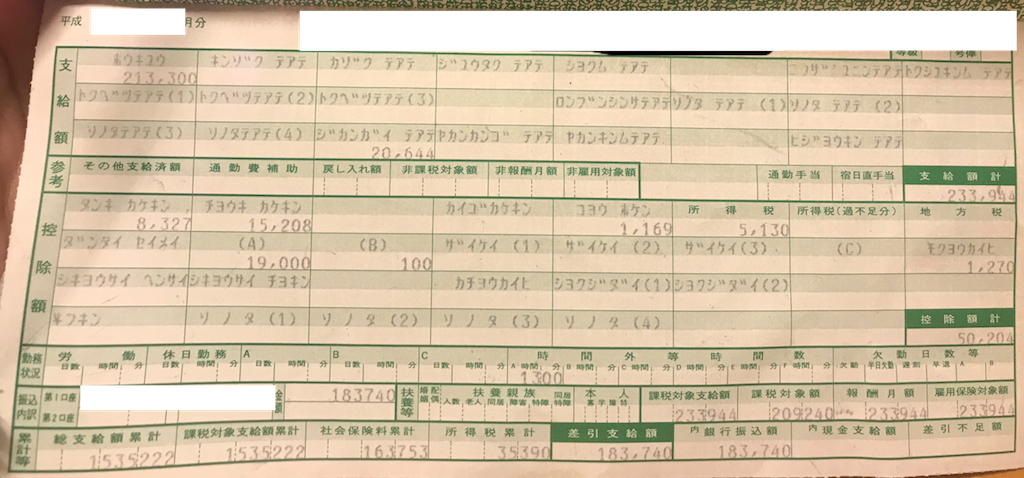 平成 月分
号俸
支給額
ホウキユウ キンゾク テアテ カゾク テアテ ジユウタク テアテ シヨクム テアテ トクシユキンム テアテ
213,300
トクベツテアテ(1) トクベツテアテ(2) トクベツテアテ(3) ロンブンシンサテアテ ソノタ テアテ (1) ソノタ テアテ (2)
ソノタテアテ(3) ソノタテアテ(4) ジカンガイ テアテ ヤカンカンゴ テアテ ヤカンキンムテアテ ヒジヨウキン テアテ
20,644
参考 その他支給済額 通勤費補助 戻し入れ額 非課税対象額 非報酬月額 非雇用対象額 通勤手当 宿日直手当 支給額計
233,944
控除額
タンキ カケキン チヨウキ カケキン カイゴカケキン コヨウ ホケン 所得税 所得税(過不足分) 地方税
8,327 15,208 1,169 5,130
ダンタイ セイメイ (A) (B) ザイケイ (1) ザイケイ (2) ザイケイ(3) (C) モクヨウカイヒ
19,000 100 1,270
シキヨウサイ ヘンサイ シキヨウサイ チヨキン カチヨウカイヒ シヨクジダイ(1) シヨクジダイ(2)
キフキン ソノタ (1) ソノタ (2) ソノタ (3) ソノタ (4) 控除額計
50,204
勤務状況 労働 休日勤務 A B C 時間外等時間数 欠勤日数等
日数 時間 分 日数 時間 分 日数 時間 分 日数 時間 分 日数 時間 分 A 時間 分 B 時間 分 C 時間 分 D 時間 分 E 時間 分 F 時間 分 欠勤 半日欠勤 遅刻 早退 A B
1300
振込内訳 第1口座 183740 扶養等 扶養親族 本人 課税対象支給額 課税対象額 報酬月額 雇用保険対象額
第2口座 人数 老人 同居 障害 特障 233944 209240 233944 233944
累計等 総支給額累計 課税対象支給額累計 社会保険料累計 所得税累計 差引支給額 内銀行振込額 内現金支給額 差引不足額
1535222 1535222 163753 35390 183,740 183,740